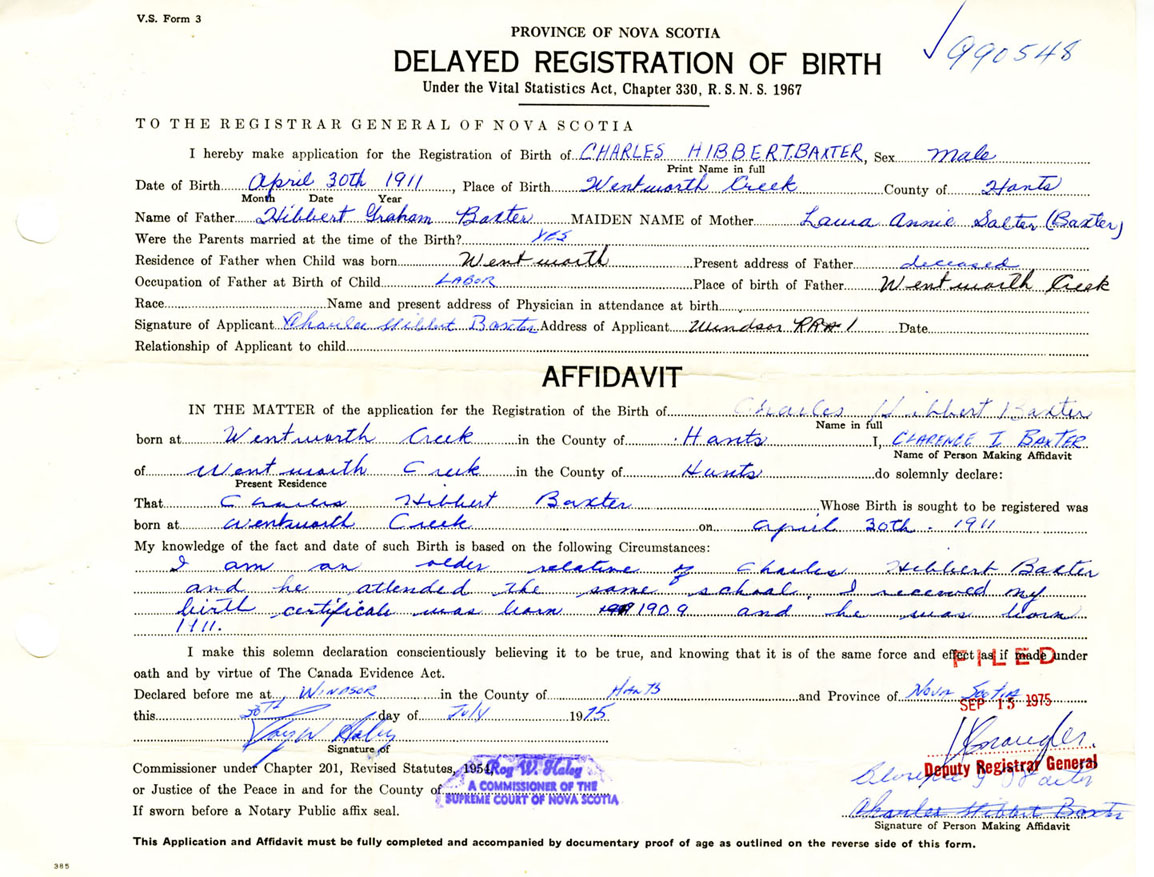 V.S. Form 3
990548
PROVINCE OF NOVA SCOTIA
DELAYED REGISTRATION OF BIRTH
Under the Vital Statistics Act, Chapter 330, R.S.N.S. 1967
TO THE REGISTRAR GENERAL OF NOVA SCOTIA
I hereby make application for the Registration of Birth of CHARLES HIBBERT BAXTER, Sex Male
Print Name in full
Date of Birth April 30th 1911, Place of Birth Wentworth Creek County of Hants
Month Date Year
Name of Father Hibbert Graham Baxter MAIDEN NAME of Mother Laura Annie Salter (Baxter)
Were the Parents married at the time of the Birth? YES
Residence of Father when Child was born Wentworth Present address of Father deceased
Occupation of Father at Birth of Child LABOR Place of birth of Father Wentworth Creek
Race Name and present address of Physician in attendance at birth
Signature of Applicant Charles Hibbert Baxter Address of Applicant Windsor RR# 1 Date
Relationship of Applicant to child
AFFIDAVIT
IN THE MATTER of the application for the Registration of the Birth of Charles Hibbert Baxter
Name in full
born at Wentworth Creek in the County of Hants I, CLARENCE I. BAXTER
Name of Person Making Affidavit
of Wentworth Creek in the County of Hants do solemnly declare:
Present Residence
That Charles Hibbert Baxter Whose Birth is sought to be registered was
born at Wentworth Creek on April 30th. 1911
My knowledge of the fact and date of such Birth is based on the following Circumstances:
I am an older relative of Charles Hibbert Baxter
and he attended the same school. I received my
birth certificate was born 1909 and he was born
1911.
I make this solemn declaration conscientiously believing it to be true, and knowing that it is of the same force and effect as if made under
FILED
oath and by virtue of The Canada Evidence Act.
Declared before me at WINDSOR in the County of HANTS and Province of NOVA SCOTIA
SEP 15 1975
this 30TH day of JULY 1975
Roy W. Haley
Signature of
Deputy Registrar General
Commissioner under Chapter 201, Revised Statutes, 1954,
Roy W. Haley
or Justice of the Peace in and for the County of
A COMMISSIONER OF THE
SUPREME COURT OF NOVA SCOTIA
If sworn before a Notary Public affix seal.
Clarence I Baxter
Charles Hibbert Baxter
Signature of Person Making Affidavit
This Application and Affidavit must be fully completed and accompanied by documentary proof of age as outlined on the reverse side of this form.
385